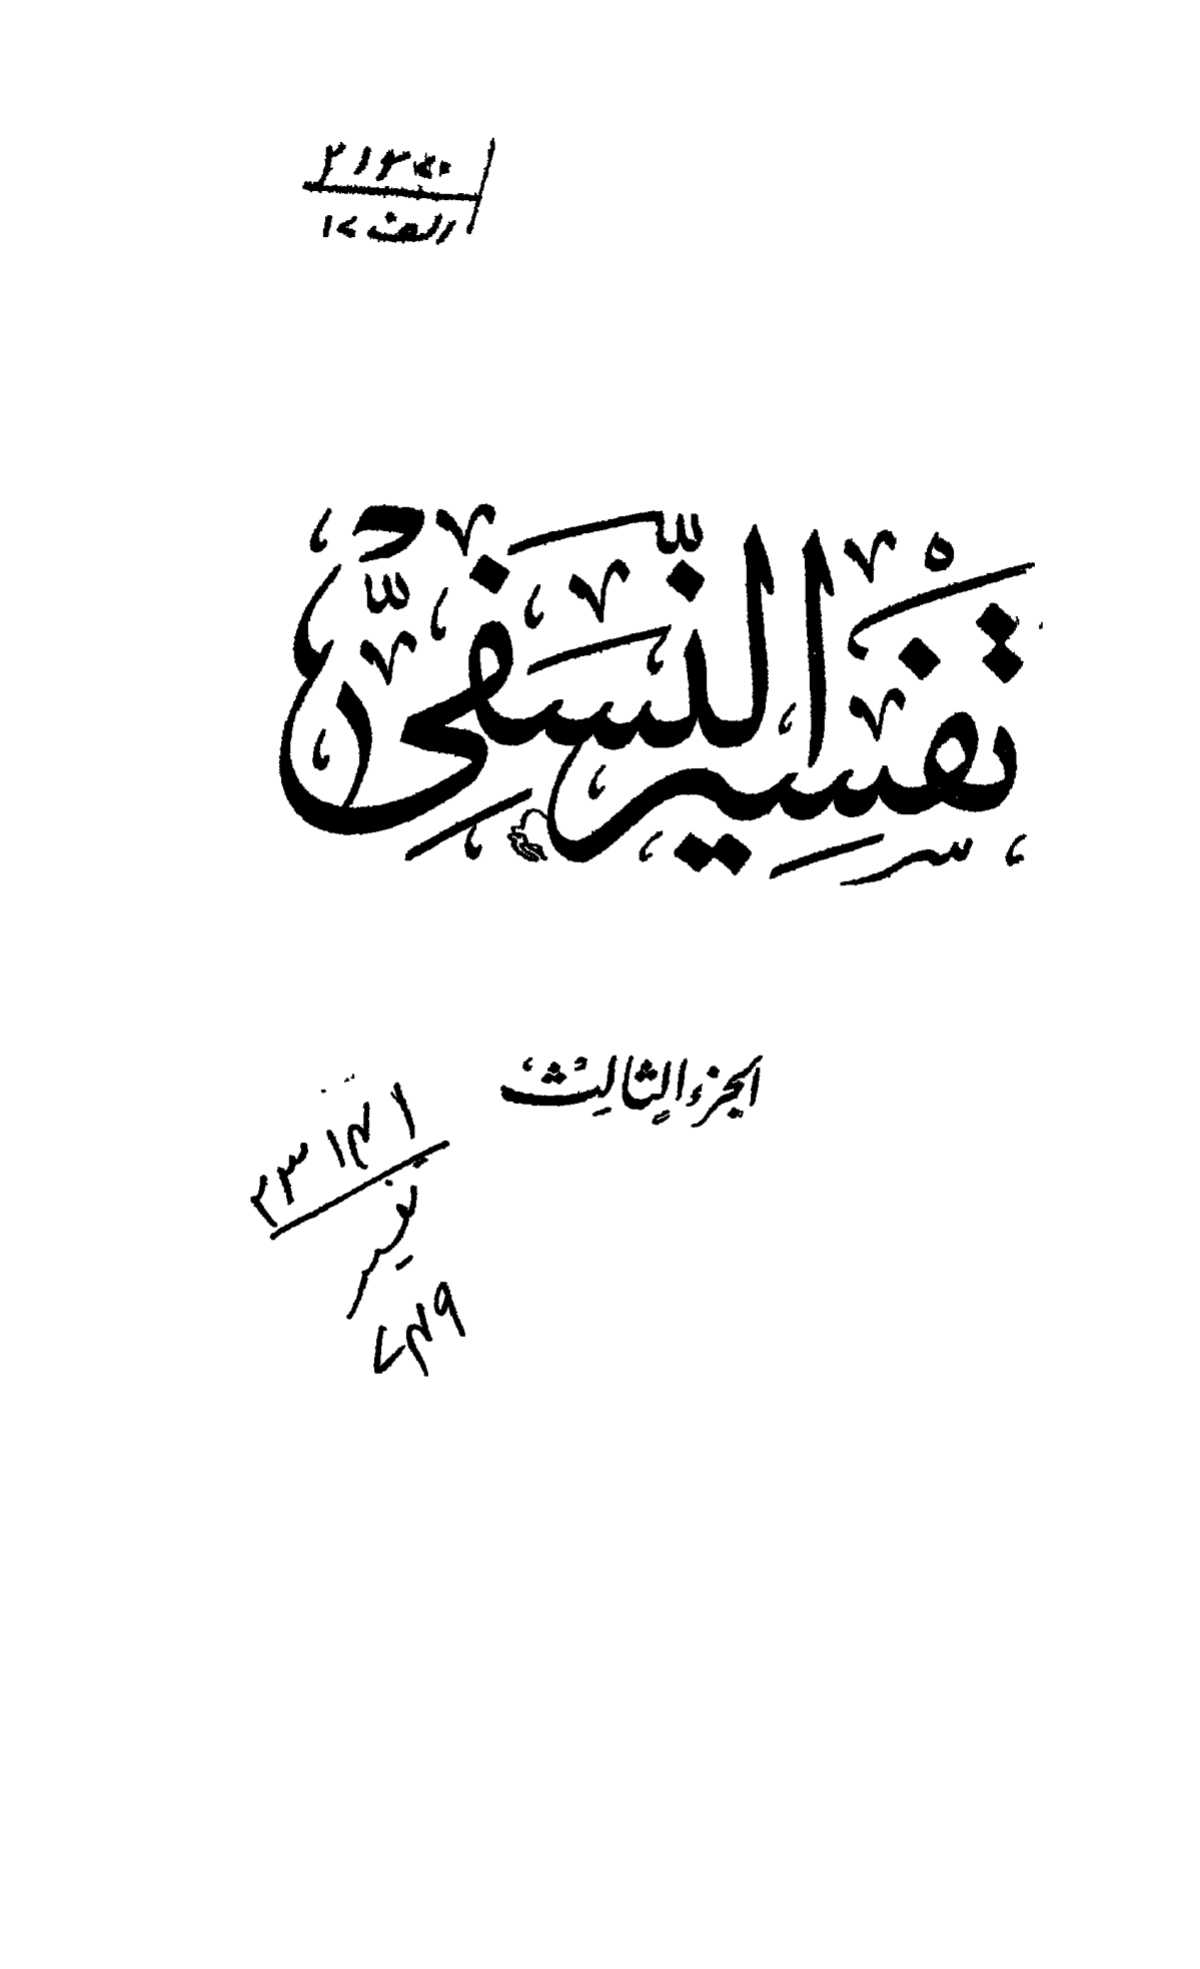 الف ١٢
تَفسير النَّسَفيّ
الجزءُ الثّالِث
٢٣١٤١
تفسير
٢٤٩